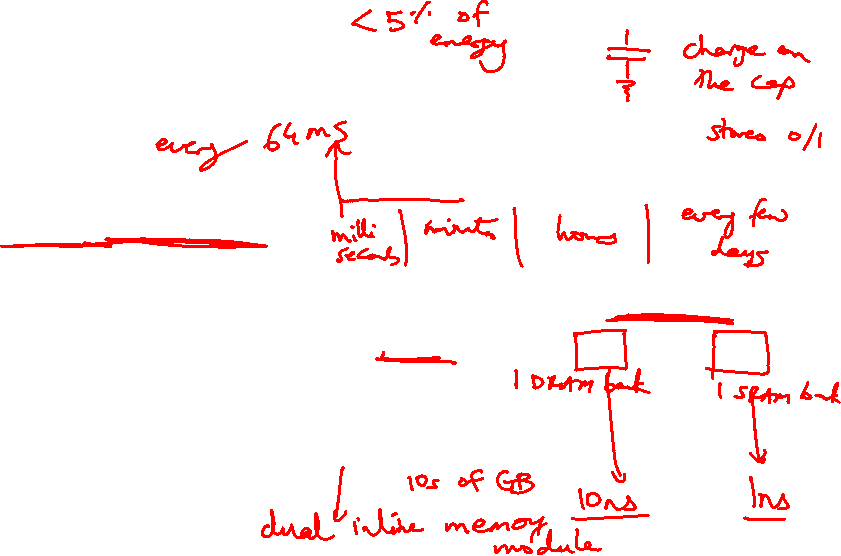 < 5% of
energy
charge on
the cap
stores 0/1
every 64 ms
milli
seconds
minutes
hours
every few
days
1 DRAM bank
1 SRAM bank
10s of GB
10ns
1ns
dual inline memory
module